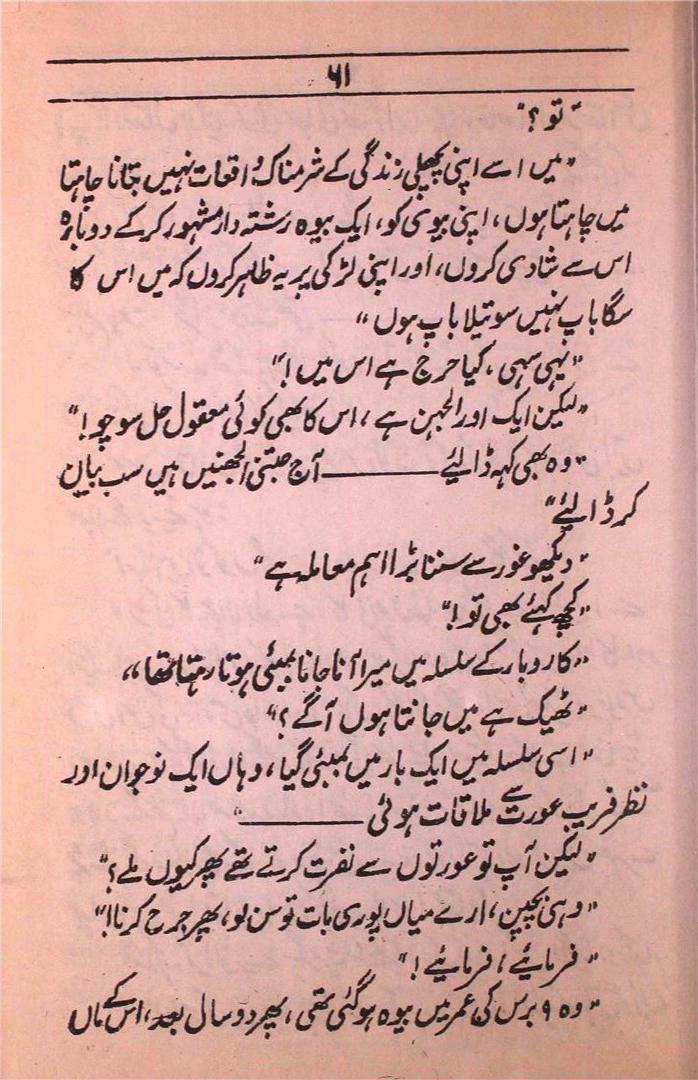 ۶۱
"تو؟"
"میں اسے اپنی پچھلی زندگی کے شرمناک واقعات نہیں بتانا چاہتا
میں چاہتا ہوں، اپنی بیوی کو، ایک بیوہ رشتہ دار مشہور کر کے دوبارہ
اس سے شادی کروں، اور اپنی لڑکی پر یہ ظاہر کروں کہ میں اس کا
سگا باپ نہیں سوتیلا باپ ہوں"
"یہی سہی، کیا حرج ہے اس میں!"
"لیکن ایک اور الجھن ہے، اس کا بھی کوئی معقول حل سوچو!"
"وہ بھی کہہ ڈالئے ——— آج جتنی الجھنیں ہیں سب بیان
کر ڈالئے"
"دیکھو غور سے سننا بڑا اہم معاملہ ہے"
"کچھ کہئے بھی تو!"
"کاروبار کے سلسلہ میں میرا آنا جانا بمبئی ہوتا رہتا تھا"
"ٹھیک ہے میں جانتا ہوں آگے؟"
"اسی سلسلہ میں ایک بار میں بمبئی گیا، وہاں ایک نوجوان اور
نظر فریب عورت سے ملاقات ہوئی ———"
"لیکن آپ تو عورتوں سے نفرت کرتے تھے پھر کیوں ملے؟"
"وہی بچپن، ارے میاں پوری بات تو سن لو، پھر جرح کرنا!"
"فرمائیے، فرمائیے!"
"وہ ۹ برس کی عمر میں بیوہ ہو گئی تھی، پھر دو سال بعد، اس کے ماں